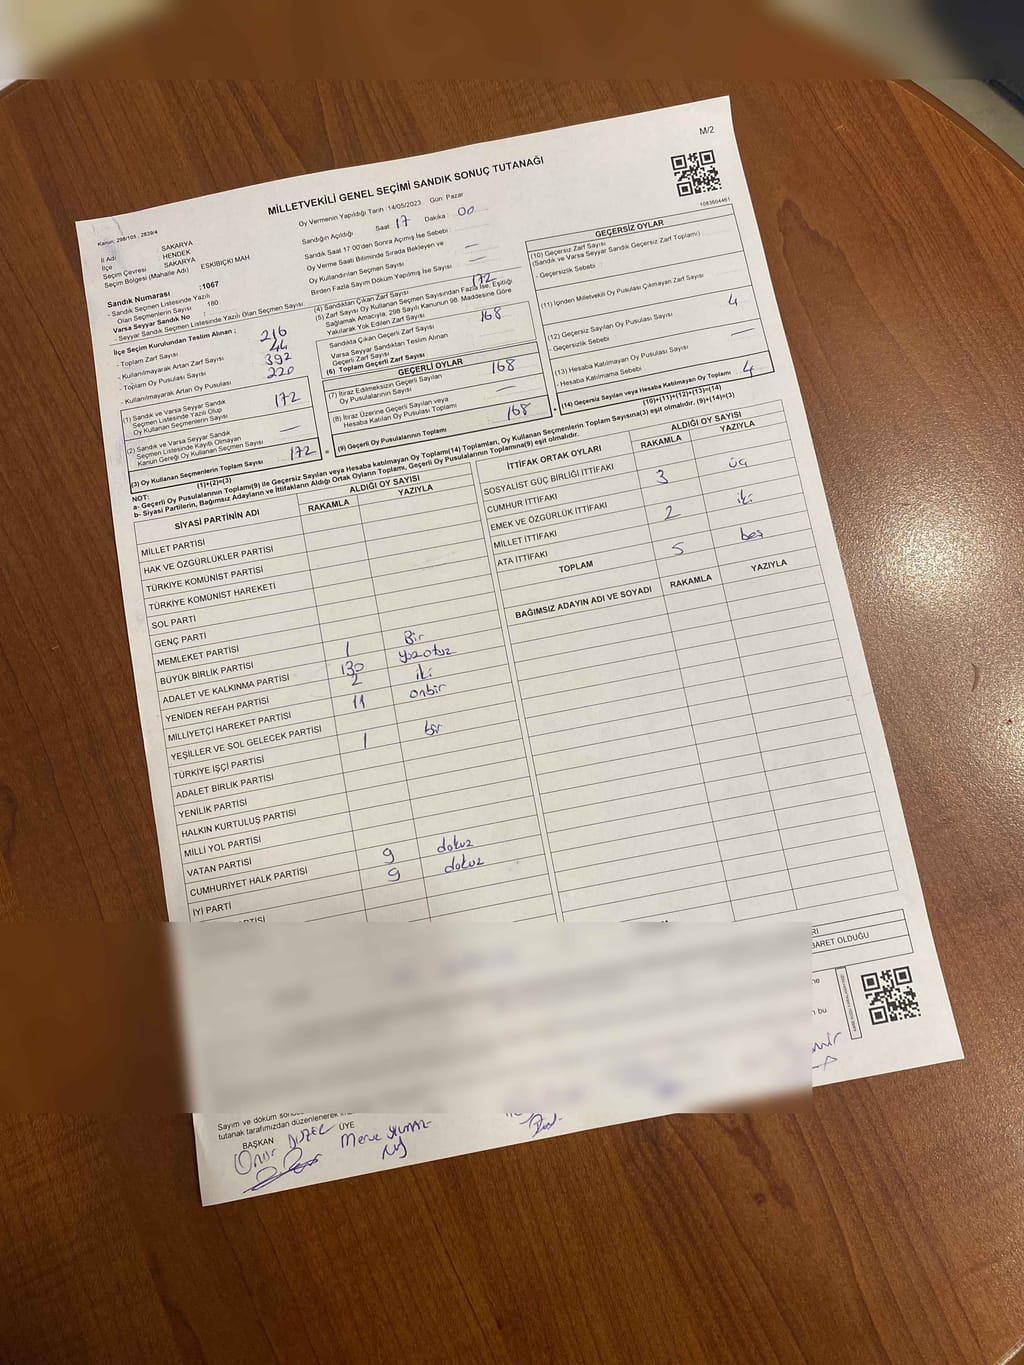 M/2
MİLLETVEKİLİ GENEL SEÇİMİ SANDIK SONUÇ TUTANAĞI
1083604461
Kanun: 298/105 , 2839/4
Oy Vermenin Yapıldığı Tarih :14/05/2023 Gün: Pazar
İl Adı : SAKARYA
İlçe : HENDEK
Seçim Çevresi : SAKARYA
Seçim Bölgesi (Mahalle Adı) : ESKİBIÇKI MAH
Sandık Numarası :1067
- Sandık Seçmen Listesinde Yazılı
Olan Seçmenlerin Sayısı : 180
Varsa Seyyar Sandık No :
- Seyyar Sandık Seçmen Listesinde Yazılı Olan Seçmen Sayısı
İlçe Seçim Kurulundan Teslim Alınan ;
- Toplam Zarf Sayısı 216
- Kullanılmayarak Artan Zarf Sayısı 44
- Toplam Oy Pusulası Sayısı 392
- Kullanılmayarak Artan Oy Pusulası 220
(1) Sandık ve Varsa Seyyar Sandık
Seçmen Listesinde Yazılı Olup
Oy Kullanan Seçmenlerin Sayısı 172
(2) Sandık ve Varsa Seyyar Sandık
Seçmen Listesinde Kayıtlı Olmayan
Kanun Gereği Oy Kullanan Seçmen Sayısı —
(3) Oy Kullanan Seçmenlerin Toplam Sayısı 172
(1)+(2)=(3)
Sandığın Açıldığı Saat 17 Dakika 00
Sandık Saat 17:00'den Sonra Açmış İse Sebebi :
Oy Verme Saati Bitiminde Sırada Bekleyen ve
Oy Kullandırılan Seçmen Sayısı —
Birden Fazla Sayım Döküm Yapılmış İse Sayısı —
(4) Sandıktan Çıkan Zarf Sayısı 172
(5) Zarf Sayısı Oy Kullanan Seçmen Sayısından Fazla İse, Eşitliği
Sağlamak Amacıyla, 298 Sayılı Kanunun 98. Maddesine Göre
Yakılarak Yok Edilen Zarf Sayısı
Sandıkta Çıkan Geçerli Zarf Sayısı 168
Varsa Seyyar Sandıktan Teslim Alınan
Geçerli Zarf Sayısı
(6) Toplam Geçerli Zarf Sayısı
GEÇERLİ OYLAR
(7) İtiraz Edilmeksizin Geçerli Sayılan
Oy Pusulalarının Sayısı 168
(8) İtiraz Üzerine Geçerli Sayılan veya
Hesaba Katılan Oy Pusulası Toplamı —
(9) Geçerli Oy Pusulalarının Toplamı 168
GEÇERSİZ OYLAR
(10) Geçersiz Zarf Sayısı
(Sandık ve Varsa Seyyar Sandık Geçersiz Zarf Toplamı)
- Geçersizlik Sebebi
(11) İçinden Milletvekili Oy Pusulası Çıkmayan Zarf Sayısı
4
(12) Geçersiz Sayılan Oy Pusulası Sayısı
- Geçersizlik Sebebi —
(13) Hesaba Katılmayan Oy Pusulası Sayısı
- Hesaba Katılmama Sebebi
(14) Geçersiz Sayılan veya Hesaba Katılmayan Oy Toplamı 4
(10)+(11)+(12)+(13)=(14)
NOT:
a- Geçerli Oy Pusulalarının Toplamı(9) ile Geçersiz Sayılan veya Hesaba katılmayan Oy Toplamı(14) Toplamları, Oy Kullanan Seçmenlerin Toplam Sayısına(3) eşit olmalıdır. (9)+(14)=(3)
b- Siyasi Partilerin, Bağımsız Adayların ve İttifakların Aldığı Ortak Oyların Toplamı, Geçerli Oy Pusulalarının Toplamına(9) eşit olmalıdır.
SİYASİ PARTİNİN ADI ALDIĞI OY SAYISI
RAKAMLA YAZIYLA
MİLLET PARTİSİ
HAK VE ÖZGÜRLÜKLER PARTİSİ
TÜRKİYE KOMÜNİST PARTİSİ
TÜRKİYE KOMÜNİST HAREKETİ
SOL PARTİ
GENÇ PARTİ
MEMLEKET PARTİSİ
BÜYÜK BİRLİK PARTİSİ 1 Bir
ADALET VE KALKINMA PARTİSİ 130 yüzotuz
YENİDEN REFAH PARTİSİ 2 iki
MİLLİYETÇİ HAREKET PARTİSİ 11 onbir
YEŞİLLER VE SOL GELECEK PARTİSİ
TÜRKİYE İŞÇİ PARTİSİ 1 bir
ADALET BİRLİK PARTİSİ
YENİLİK PARTİSİ
HALKIN KURTULUŞ PARTİSİ
MİLLİ YOL PARTİSİ
VATAN PARTİSİ
CUMHURİYET HALK PARTİSİ 9 dokuz
İYİ PARTİ 9 dokuz
İTTİFAK ORTAK OYLARI ALDIĞI OY SAYISI
RAKAMLA YAZIYLA
SOSYALİST GÜÇ BİRLİĞİ İTTİFAKI
CUMHUR İTTİFAKI 3 üç
EMEK VE ÖZGÜRLÜK İTTİFAKI
MİLLET İTTİFAKI 2 iki
ATA İTTİFAKI
TOPLAM 5 beş
BAĞIMSIZ ADAYIN ADI VE SOYADI RAKAMLA YAZIYLA
BARET OLDUĞU
Sayım ve döküm
tutanak tarafımızdan düzenlenerek
BAŞKAN ÜYE
Onur DÜZEL Merve YILMAZ